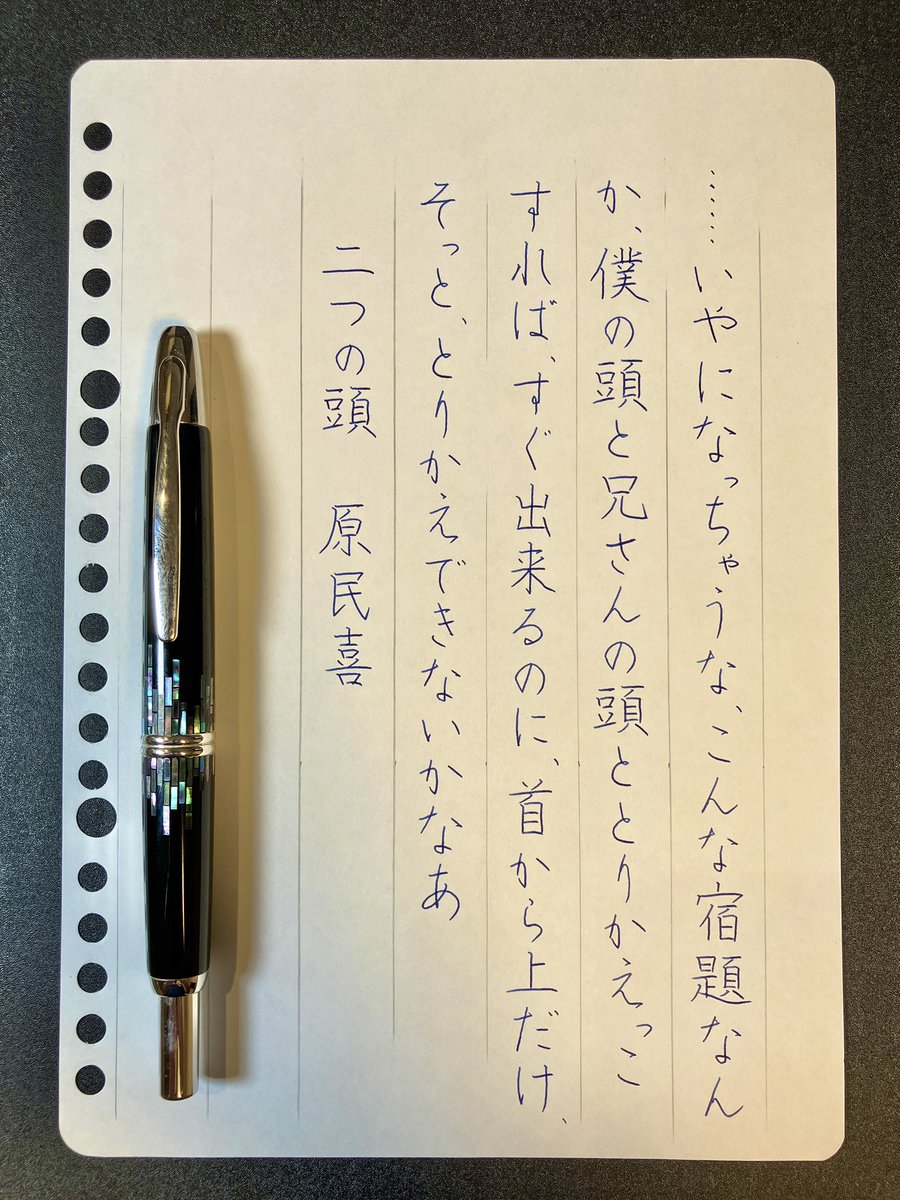 ……いやになっちゃうな、こんな宿題なん
か、僕の頭と兄さんの頭ととりかえっこ
すれば、すぐ出来るのに、首から上だけ、
そっと、とりかえできないかなあ
二つの頭　原民喜